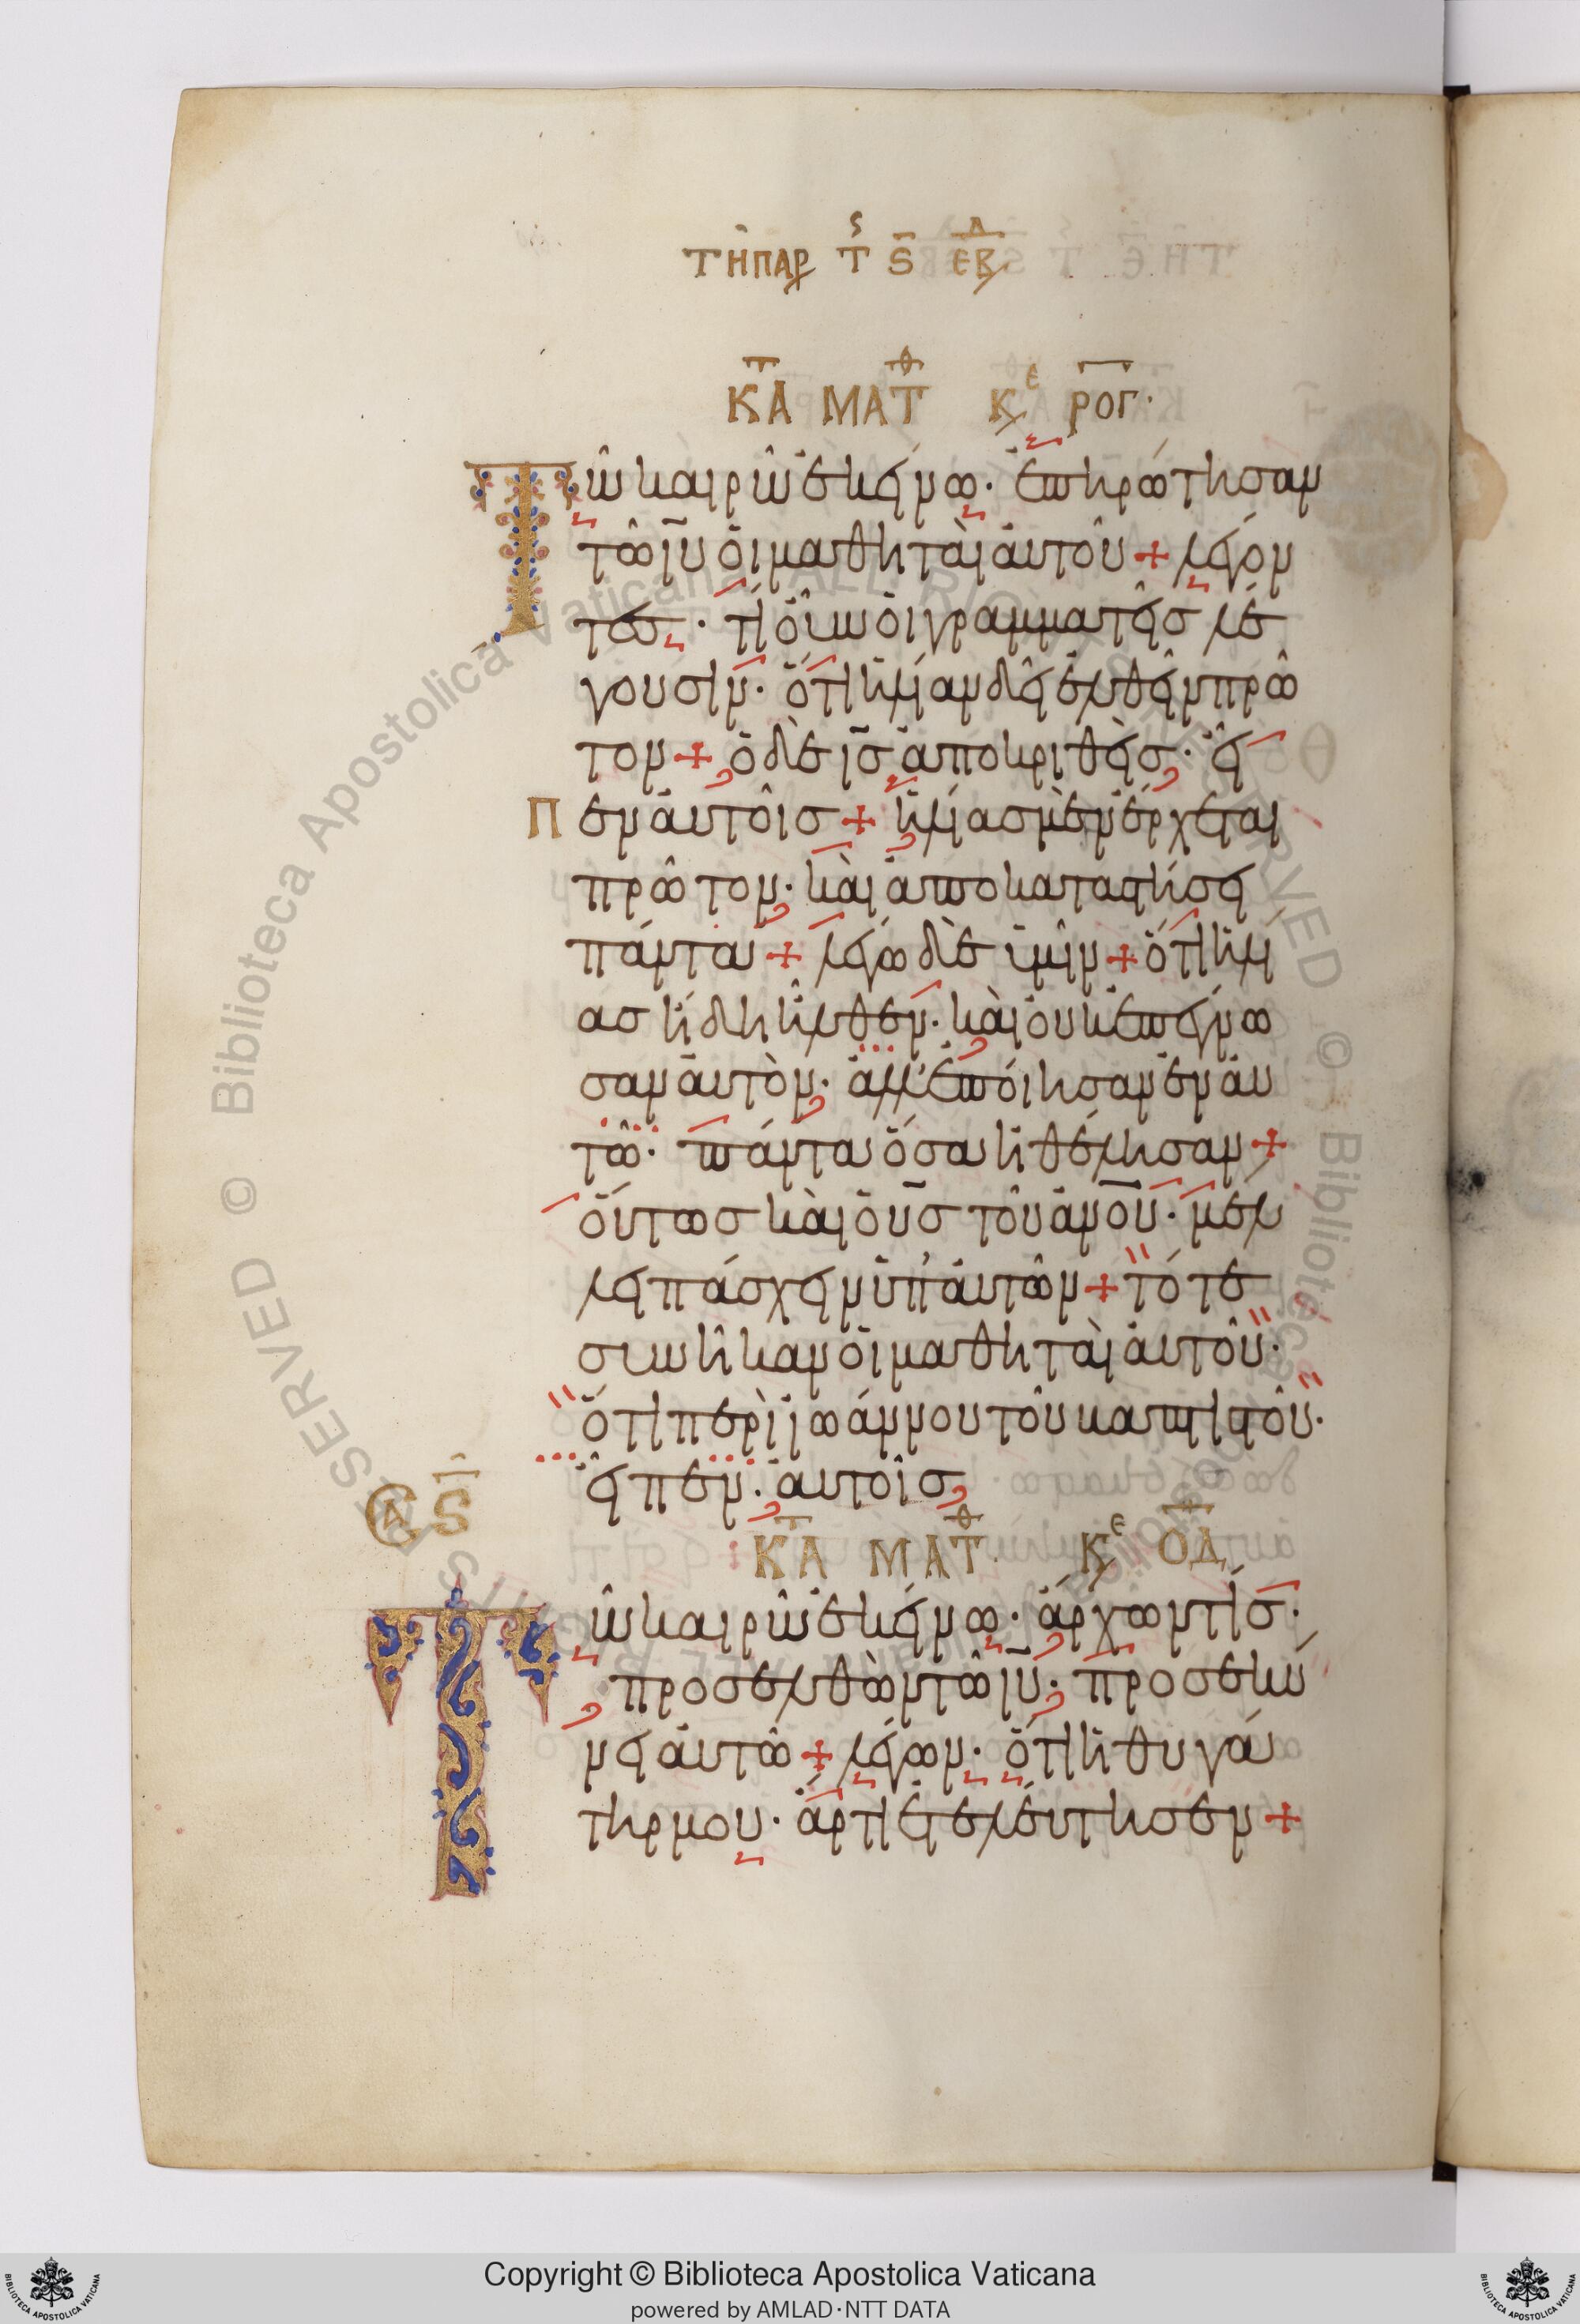 ΤΗ ΠΑΡ Τ ς ΕΒΔ
ΚΑΤ ΜΑΤΘ ΚΕ ΡΟΓ·
Τῶ καιρῶ ἐκείνω· ἐπηρώτησαν
τῶ ιυ οἱ μαθηταὶ ἀυτοῦ + λέγον
τες· τί οὖν οἱ γραμματεῖς λέ
γουσιν· ὅτι ἠλίαν δεῖ ἐλθεῖν πρῶ
τον + ὁ δὲ ις ἀποκριθεὶς· εἶ
Πεν ἀυτοῖς + ἠλίας μὲν ἔρχεται
πρῶτον· καὶ ἀποκαταστήσει
πάντα + λέγω δὲ ὑμῖν + ὅτι ἠλί
ας ἤδη ἦλθεν· καὶ οὐκ ἐπέγνω
σαν ἀυτὸν· ἀλλ' ἐποίησαν ἐν ἀυ
τῶ· πάντα ὅσα ἠθέλησαν +
ὅυτως καὶ ὁ υς τοῦ ανου· μέλ
λει πάσχειν ὑπ' ἀυτῶν + τότε
συνῆκαν οἱ μαθηταὶ ἀυτοῦ·
ὅτι περὶ ἰωάννου τοῦ βαπτιστοῦ·
εἶπεν· ἀυτοῖς
ΣΑ ς ΚΑΤ ΜΑΤΘ· ΚΕ ΟΔ
Τῶ καιρῶ ἐκείνω· ἄρχων τίς·
προσελθὼν τῶ ιυ· προσεκύ
νει ἀυτῶ + λέγων· ὅτι ἡ θυγά
τηρ μου· ἄρτι ἐτελέυτησεν +
Copyright © Biblioteca Apostolica Vaticana
powered by AMLAD·NTT DATA